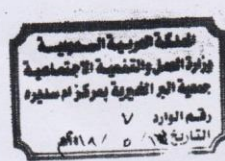 المملكة العربية السعودية
وزارة العمل والتنمية الاجتماعية
جمعية البر الخيرية بمركز ام سليره
رقم الوارد ٧
التاريخ